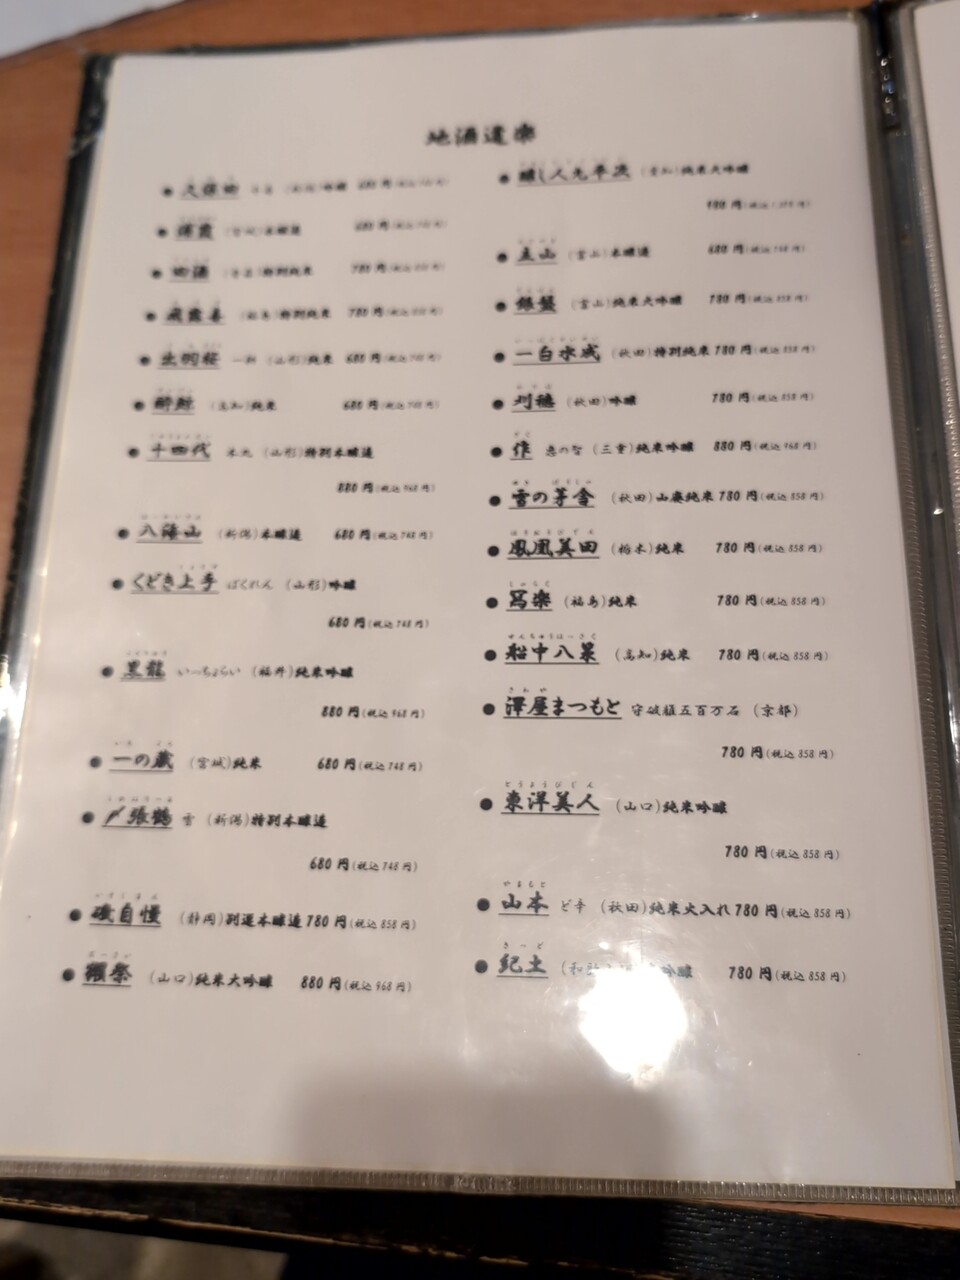 地酒道楽
久保田
浦霞 (宮城)本醸造
田酒 特別純米 780円
飛露喜 特別純米 780円
出羽桜 一耕 (山形)純米 680円(税込748円)
酔鯨 (高知)純米 680円(税込748円)
十四代 本丸 (山形)特別本醸造
880円(税込968円)
八海山 (新潟)本醸造 680円(税込748円)
くどき上手 ばくれん (山形)吟醸
680円(税込748円)
黒龍 いっちょらい (福井)純米吟醸
880円(税込968円)
一の蔵 (宮城)純米 680円(税込748円)
〆張鶴 雪 (新潟)特別本醸造
680円(税込748円)
磯自慢 (静岡)別選本醸造 780円(税込858円)
獺祭 (山口)純米大吟醸 880円(税込968円)
醸し人九平次 (愛知)純米大吟醸
立山 (富山)本醸造 680円(税込748円)
銀盤 (富山)純米大吟醸 780円(税込858円)
一白水成 (秋田)特別純米 780円(税込858円)
刈穂 (秋田)吟醸 780円(税込858円)
作 恵の智 (三重)純米吟醸 880円(税込968円)
雪の茅舎 (秋田)山廃純米 780円(税込858円)
鳳凰美田 (栃木)純米 780円(税込858円)
寫楽 (福島)純米 780円(税込858円)
船中八策 (高知)純米 780円(税込858円)
澤屋まつもと 守破離五百万石 (京都)
780円(税込858円)
東洋美人 (山口)純米吟醸
780円(税込858円)
山本 ど辛 (秋田)純米火入れ 780円(税込858円)
紀土 吟醸 780円(税込858円)